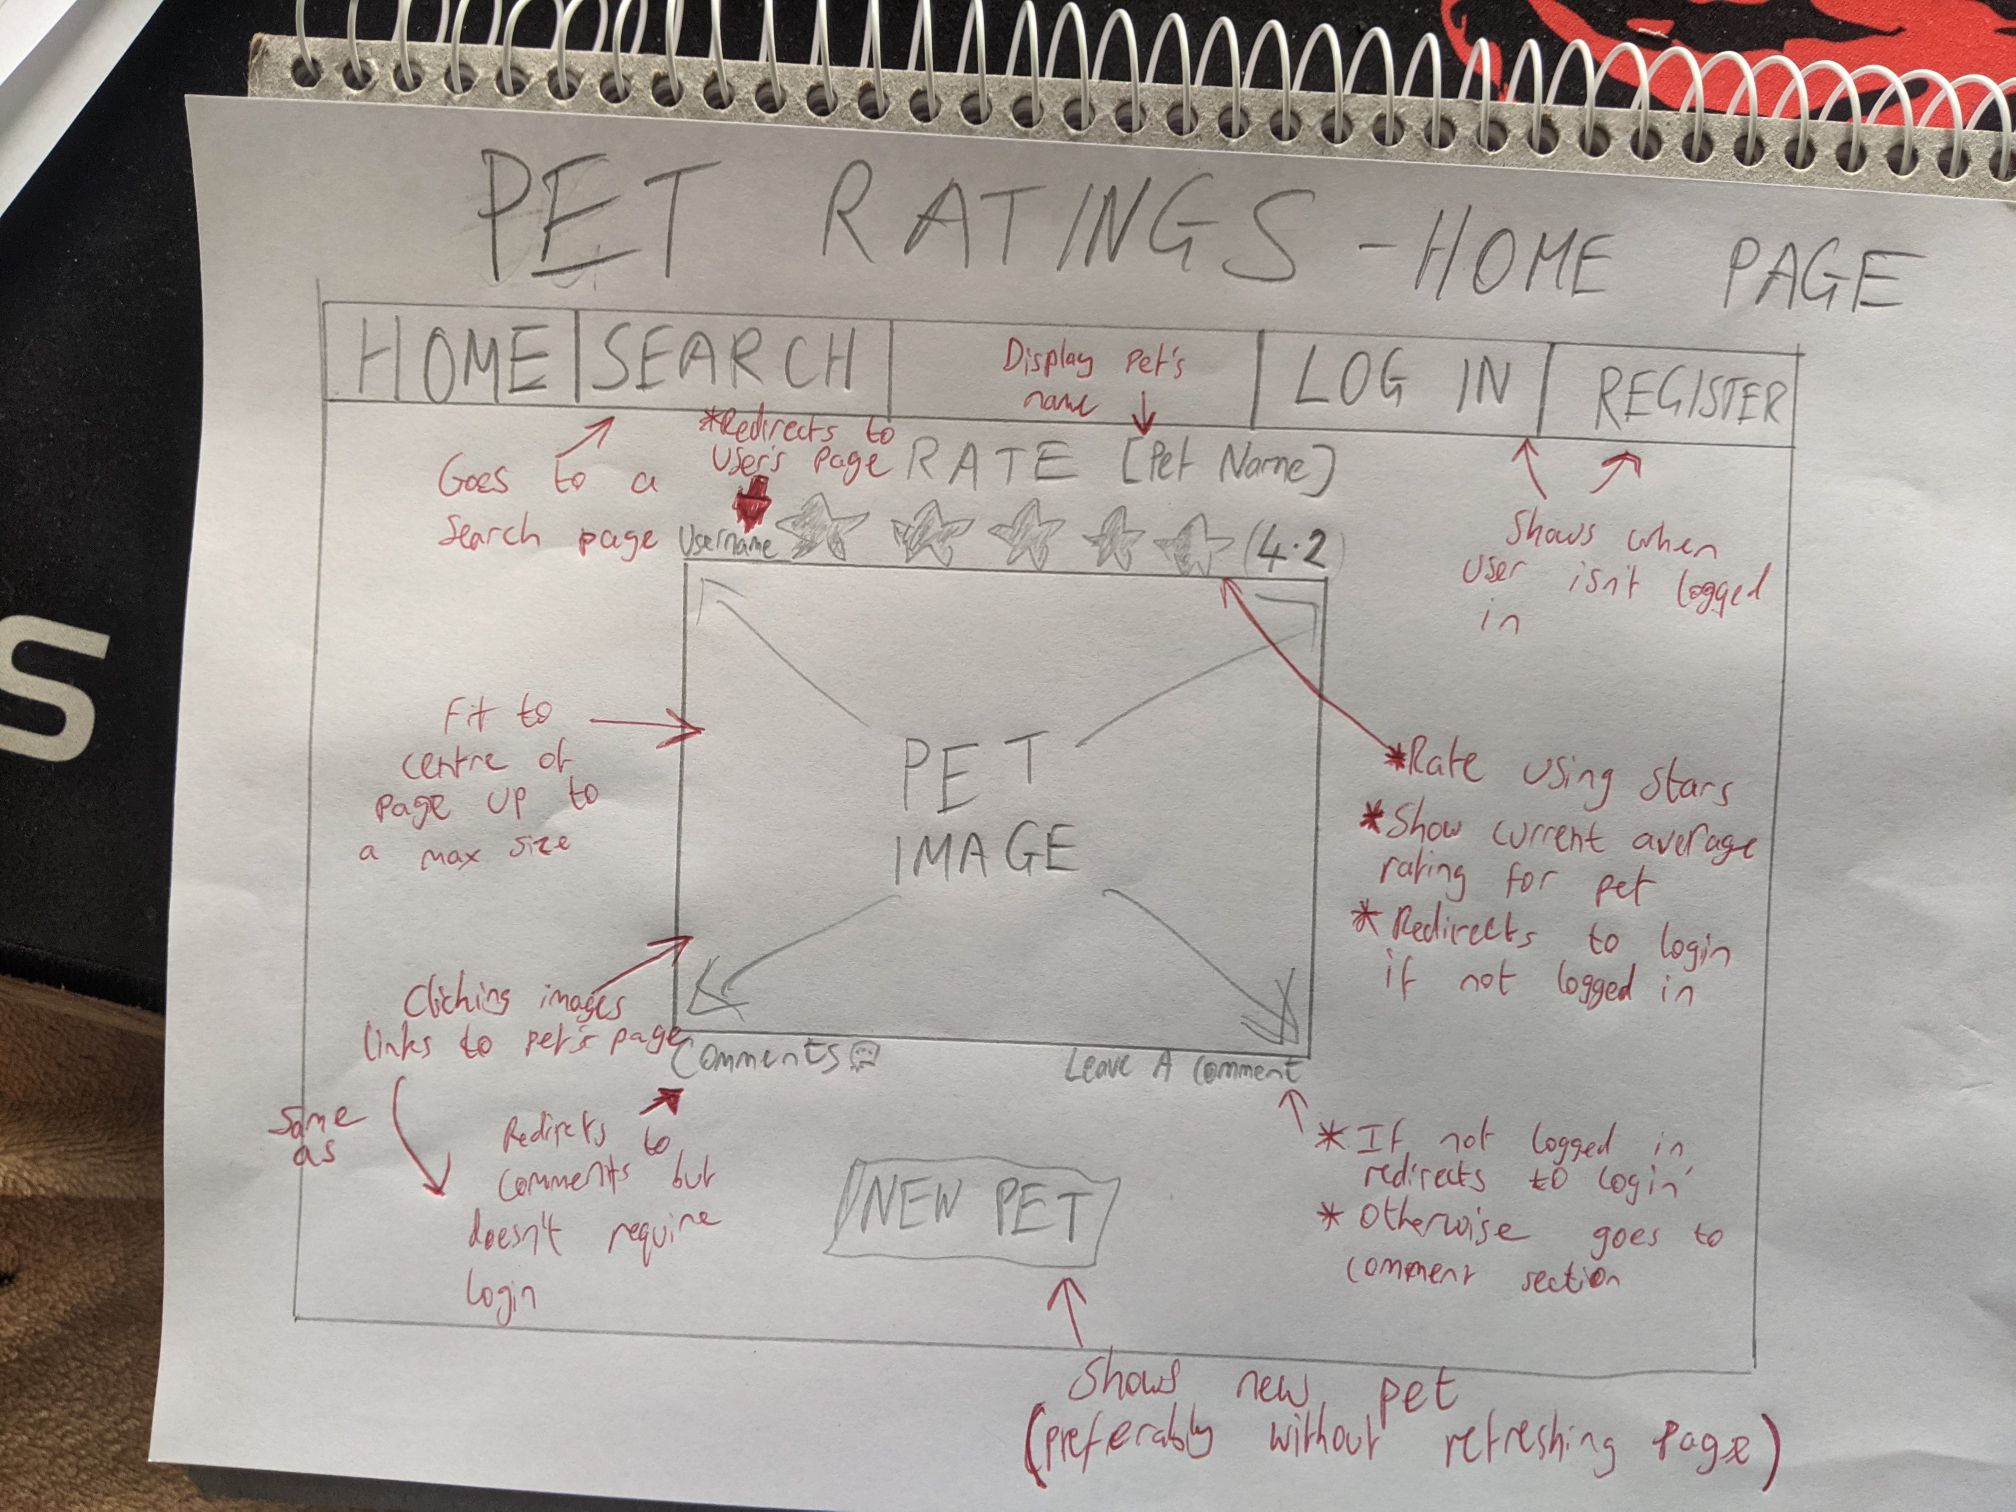 PET RATINGS - HOME PAGE
HOME
SEARCH
LOG IN
REGISTER
Display pet's
name
Goes to a
search page
*Redirects to
User's page
RATE [Pet Name]
Username
(4.2)
Shows when
user isn't logged
in
Fit to
centre of
page up to
a max size
PET
IMAGE
*Rate using stars
*Show current average
rating for pet
*Redirects to login
if not logged in
Clicking images
links to pet's page
Same
as
Comments
Leave A Comment
Redirects to
comments but
doesn't require
login
NEW PET
*If not logged in
redirects to login
*Otherwise goes to
comment section
Shows new pet
(preferably without refreshing page)
S